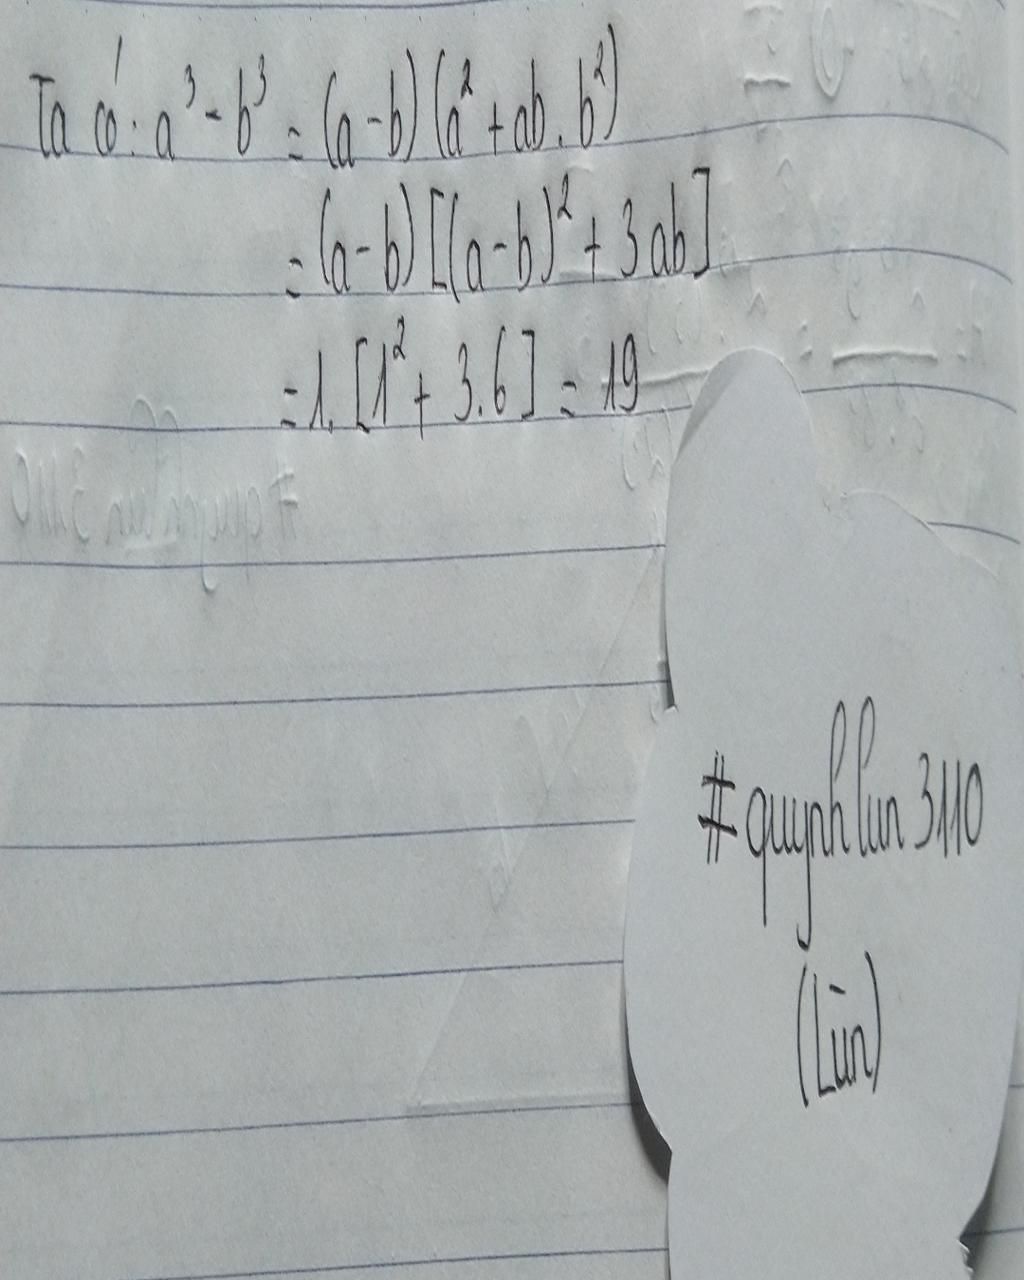 Ta có: a³ - b³ = (a-b) (a² + ab . b²)
= (a-b) [(a-b)² + 3ab]
= 1. [1² + 3.6] = 19
#quynh lun 3110
(Lūn)